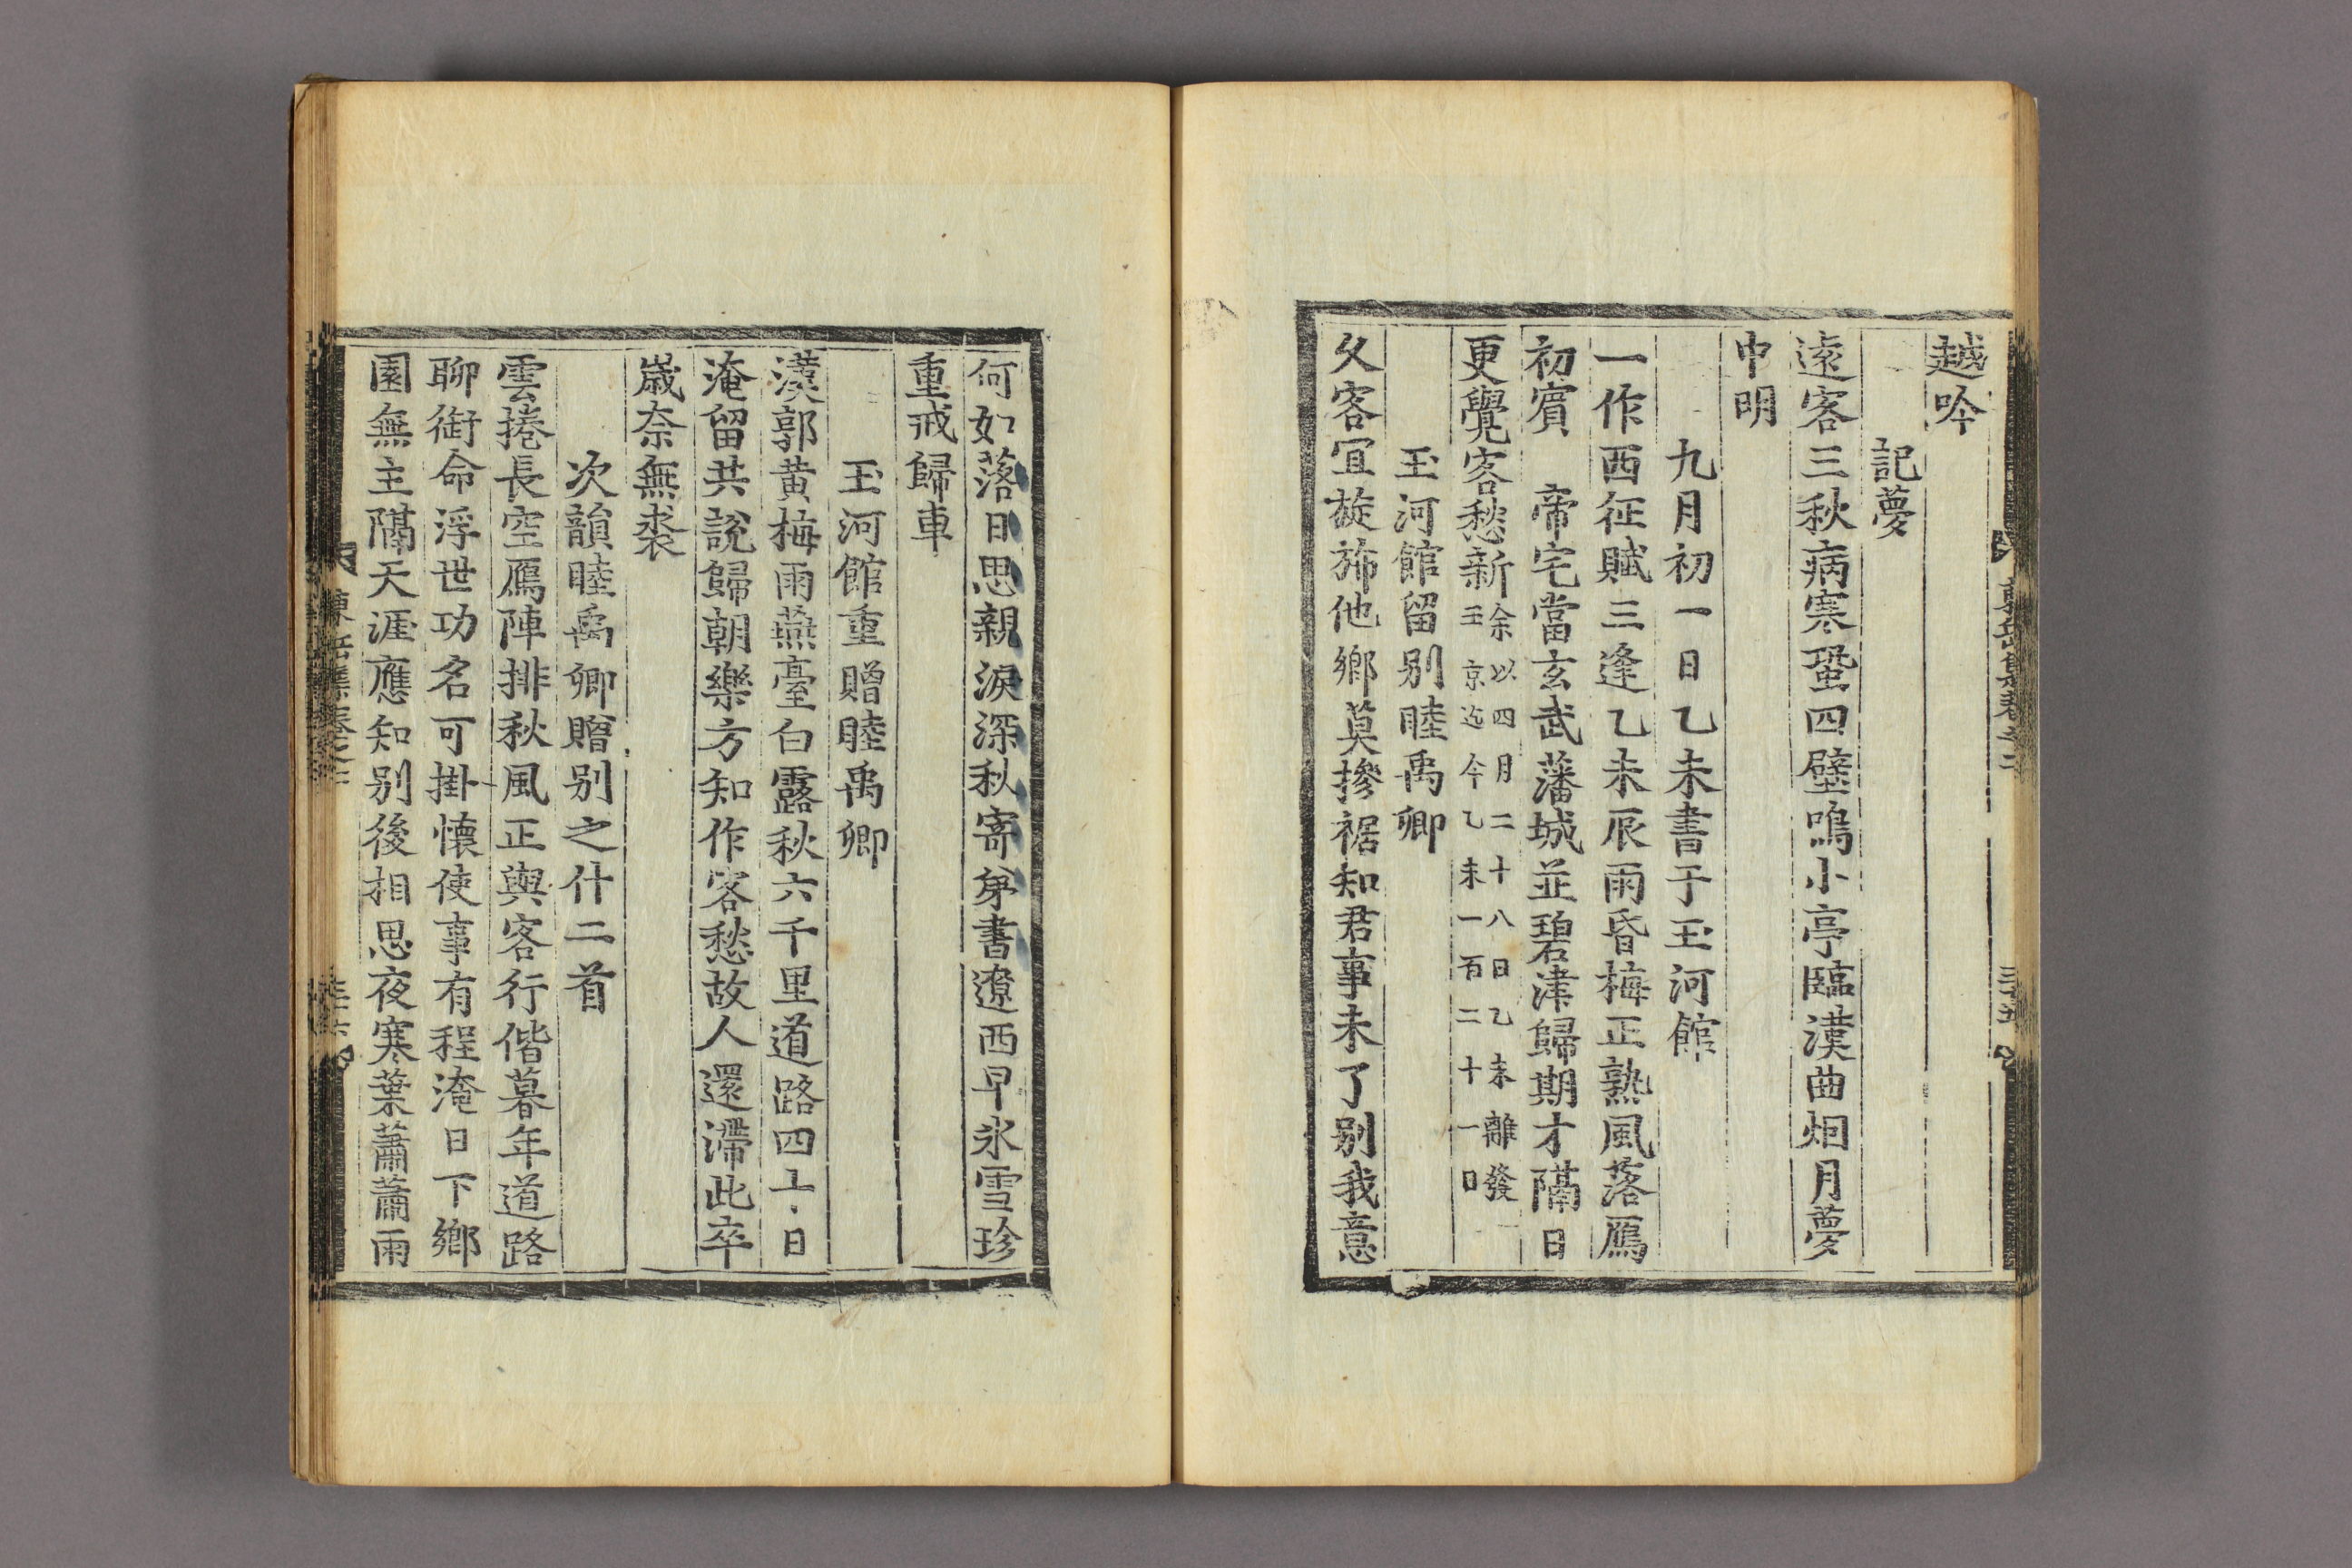 越吟
記夢
遠客三秋病寒蛩四壁鳴小亭臨漢曲烟月夢
中明
九月初一日乙未書于玉河館
一作西征賦三逢乙未辰雨昏梅正熟風落鴈
初賓 帝宅當玄武藩城並碧津歸期才隔日
更覺客愁新余以四月二十八日乙未離發
王京迄今乙未一百二十一日
玉河館留别睦禹卿
久客宜旋斾他鄉莫摻裾知君事未了别我意
何如落日思親淚深秋寄弟書遼西早氷雪珍
重戒歸車
玉河館重贈睦禹卿
漢郭黄梅雨燕臺白露秋六千里道路四 日
淹留共說歸朝樂方知作客愁故人還滯此卒
歲奈無裘
次韻睦禹卿贈别之什二首
雲捲長空鴈陣排秋風正與客行偕暮年道路
聊銜命浮世功名可掛懷使事有程淹日下鄉
園無主隔天涯應知别後相思夜寒葉蕭蕭雨